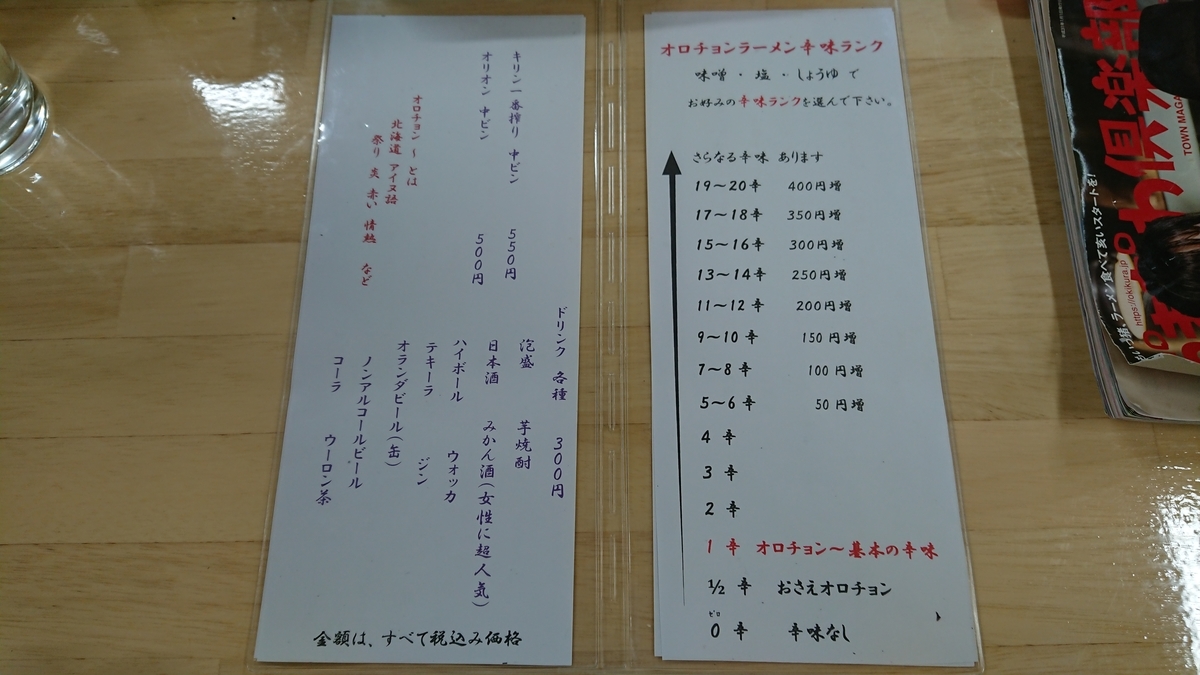 キリン一番搾り 中ビン 550円
オリオン 中ビン 500円
オロチョン～とは
北海道 アイヌ語
祭り 炎 赤い 情熱 など
ドリンク 各種 300円
泡盛 芋焼酎
日本酒 みかん酒(女性に超人気)
ハイボール ウォッカ
テキーラ ジン
オランダビール(缶)
ノンアルコールビール
コーラ ウーロン茶
金額は、すべて税込み価格
オロチョンラーメン辛味ランク
味噌・塩・しょうゆで
お好みの辛味ランクを選んで下さい。
さらなる辛味 あります
19～20辛 400円増
17～18辛 350円増
15～16辛 300円増
13～14辛 250円増
11～12辛 200円増
9～10辛 150円増
7～8辛 100円増
5～6辛 50円増
4辛
3辛
2辛
1辛 オロチョン～基本の辛味
½辛 おさえオロチョン
ゼロ
0辛 辛味なし
わ倶楽部
TOWN MAGA
ラーメン食べて玄いスタートを!
https://okikura.jp